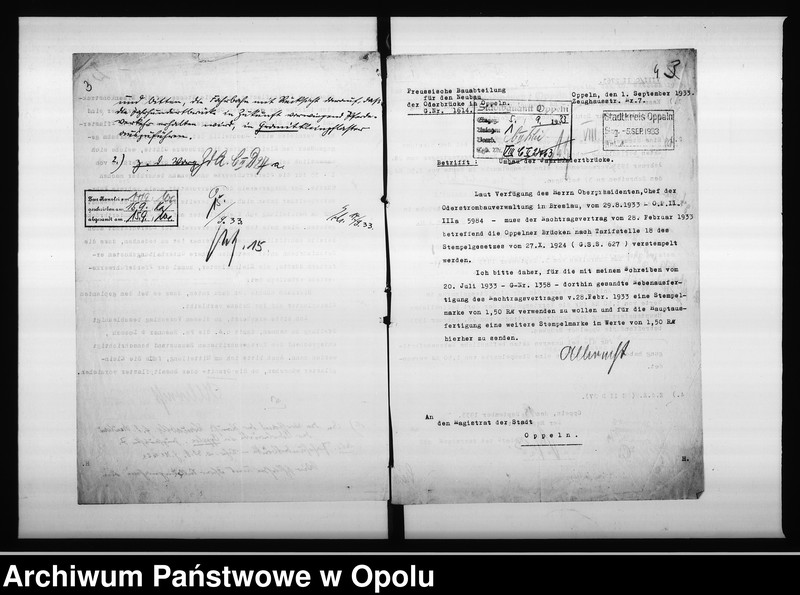 3
und bitten, die Fahrbahn mit Rücksicht darauf, daß
die Jahrhundertbrücke in Zukunft vorwiegend Pferde-
verkehr erhalten wird, in Granitkleinpflaster
auszuführen.
2.)
15.9.
15.9.
33
15.
33.
4 3
Preussische Bauabteilung
für den Neubau
der Oderbrücke in Oppeln.
G.Nr. 1614.
Oppeln, den 1. September 1933.
Zeughausstr. Nr.7.
Oppeln
5. 9 1933
Stadtkreis Oppeln
Eing. -5.SEP.1933
VIII
Betrifft : Umbau der Jahrhundertbrücke.
Laut Verfügung des Herrn Oberpräsidenten, Chef der
Oderstrombauverwaltung in Breslau, vom 29.8.1933 - O.P.II.
IIIa 5984 - muss der Nachtragsvertrag vom 28. Februar 1933
betreffend die Oppelner Brücken nach Tarifstelle 18 des
Stempelgesetzes vom 27.X. 1924 ( G.S.S. 627 ) verstempelt
werden.
Ich bitte daher, für die mit meinem Schreiben vom
20. Juli 1933 - G-Nr. 1358 - dorthin gesandte Nebenausfer-
tigung des Nachtragsvertrages v.28.Febr. 1933 eine Stempel-
marke von 1,50 RM verwenden zu wollen und für die Hauptaus-
fertigung eine weitere Stempelmarke im Werte von 1,50 RM
hierher zu senden.
Albrecht
An
den Magistrat der Stadt
Oppeln.
H.
Archiwum Państwowe w Opolu